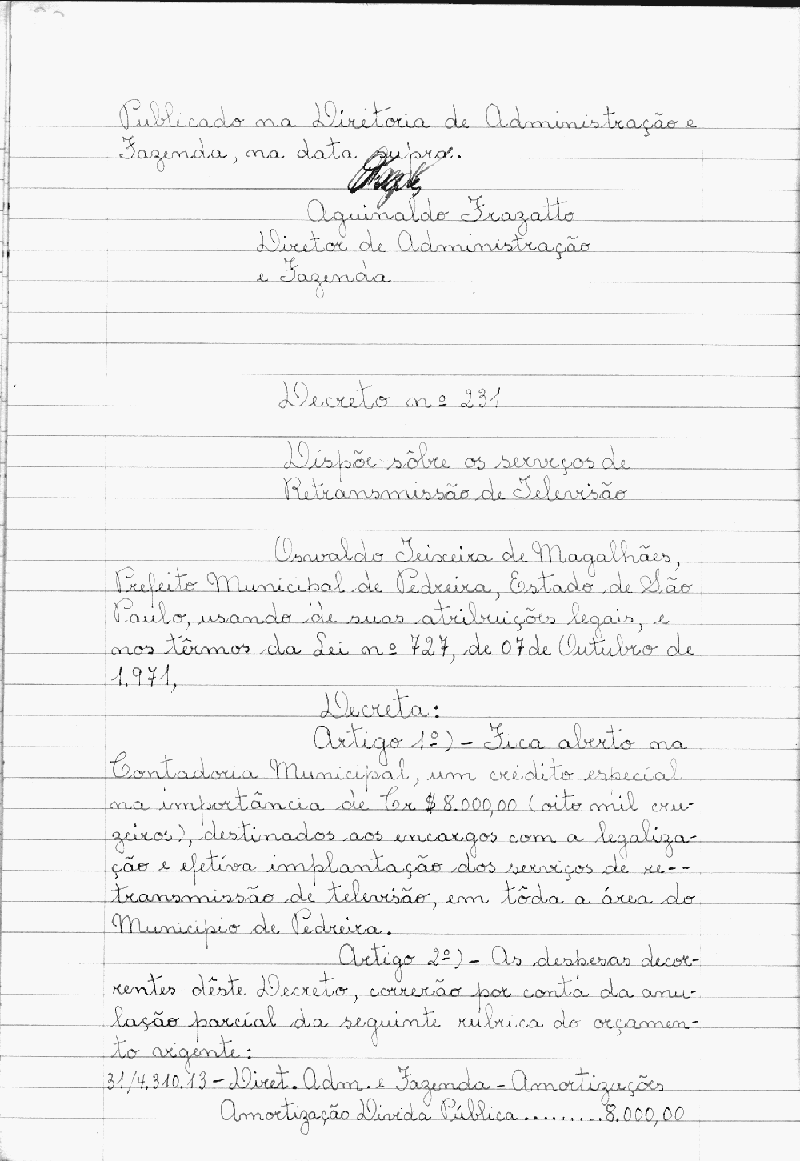 Publicado na Diretória de Administração e
Fazenda, na data supra.
Aguinaldo Frazatto
Diretor de Administração
e Fazenda
Decreto nº 231
Dispõe sôbre os serviços de
Retransmissão de Televisão
Oswaldo Teixeira de Magalhães,
Prefeito Municipal de Pedreira, Estado de São
Paulo, usando de suas atribuições legais, e
nos têrmos da Lei nº 727, de 07 de Outubro de
1.971,
Decreta:
Artigo 1º) - Fica aberto na
Contadoria Municipal, um crédito especial
na importância de Cr$ 8.000,00 (oito mil cru-
zeiros), destinados aos encargos com a legaliza-
ção e efetiva implantação dos serviços de re--
transmissão de televisão, em tôda a área do
Municipio de Pedreira.
Artigo 2º) - As despesas decor-
rentes dêste Decreto, correrão por conta da anu-
lação parcial da seguinte rúbrica do orçamen-
to vigente:
31/4.310.13 - Diret. Adm. e Fazenda - Amortizações
Amortização Divida Pública..........8.000,00